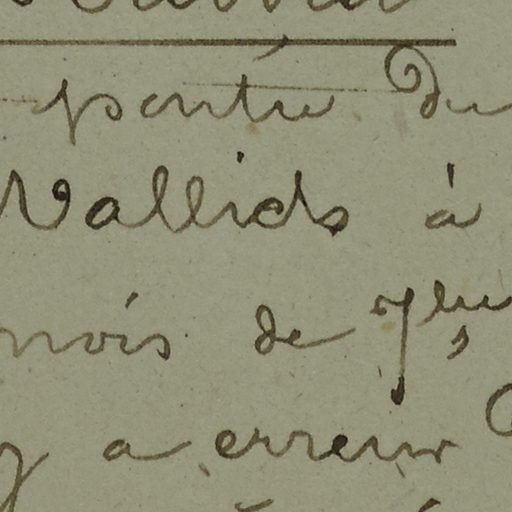 portée du
Valliets à
mois de 7bre,
y a erreur